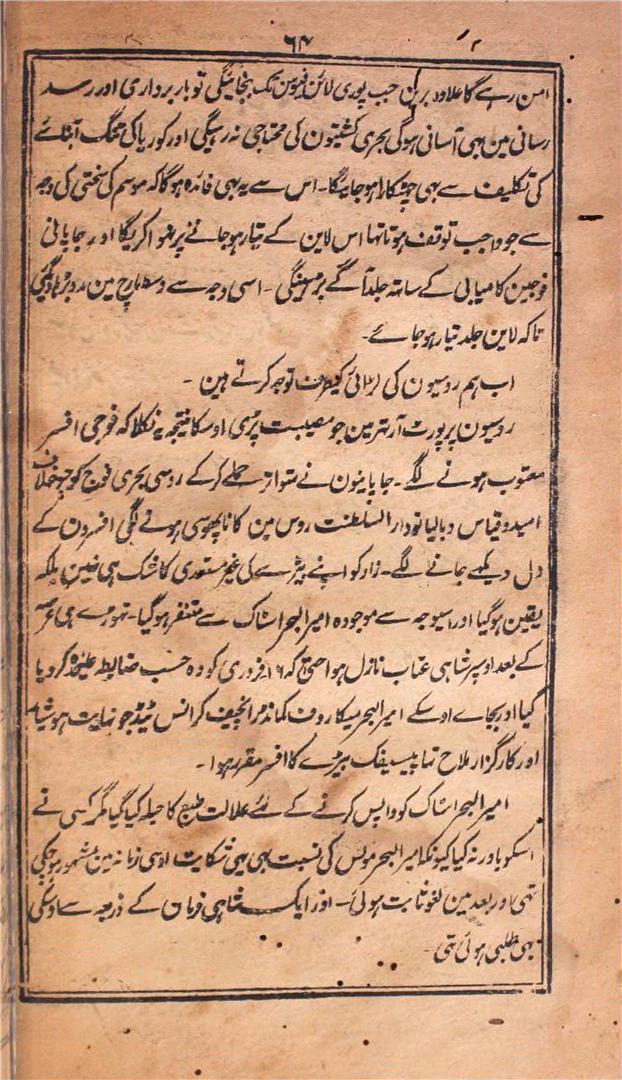 ۶۴
امن رہے گا علاوہ برین جب پوری لائن فیوسن تک بنجائیگی تو باربرداری اور رسد
رسانی مین بہی آسانی ہوگی بحری کشتیون کی محتاجی نہ رہیگی اور کوریا کی تنگ آبنائے
کی تکلیف سے بہی چھٹکارا ہو جائیگا۔ اس سے یہ بہی فائدہ ہوگا کہ موسم کی سختی کی وجہ
سے جو واجب توقف ہوتا تہا اس لاین کے تیار ہو جانے پر نہوا کریگا اور جاپانی
فوجین کامیابی کے ساتھ جلد آگے بڑہینگی ۔ اسی وجہ سے وسط مارچ مین مدد بڑہا دیگئی
تاکہ لاین جلد تیار ہو جائے۔
اب ہم روسیون کی لڑائی کیطرف توجہ کرتے ہین ۔
روسیون پر پورٹ آرتھر مین جو مصیبت پڑی اوسکا نتیجہ یہ نکلا کہ فوجی افسر
معتوب ہونے لگے۔ جاپانیون نے متواتر حملے کرکے روسی بحری فوج کو جو خلاف
امید و قیاس دبا لیا تو دارالسلطنت روس مین کاناپھوسی ہونے لگی افسرون کے
دل دیکہے جانے لگے۔ زار کو اپنے بیڑے کی غیر مستعدی کا شک ہی نہین بلکہ
یقین ہو گیا اور اسیوجہ سے موجودہ امیرالبحر اسٹاک سے متنفر ہو گیا۔ تہوڑے ہی عرصہ
کے بعد اوسپر شاہی عتاب نازل ہوا حتیٰ کہ ۱۶ فروری کو وہ حسب ضابطہ علیحدہ کر دیا
گیا اور بجاے اوسکے امیرالبحر میکاروف کمانڈر انچیف کرانس ٹیڈ جو نہایت ہوشیار
اور کارگزار ملاح تہا پیسیفک بیڑے کا افسر مقرر ہوا۔
امیرالبحر اسٹاک کو واپس کرنے کے لئے علالت طبع کا حیلہ کیا گیا مگر کسی نے
اسکو باور نہ کیا کیونکہ امیرالبحر مولس کی نسبت بہی یہی شکایت اوسی زمانہ مین مشہور ہو چکی
تہی اور بعد مین لغو ثابت ہوئی۔ اور ایک شاہی فرمان کے ذریعہ سے اوسکی
بہی طلبی ہوئی تہی۔